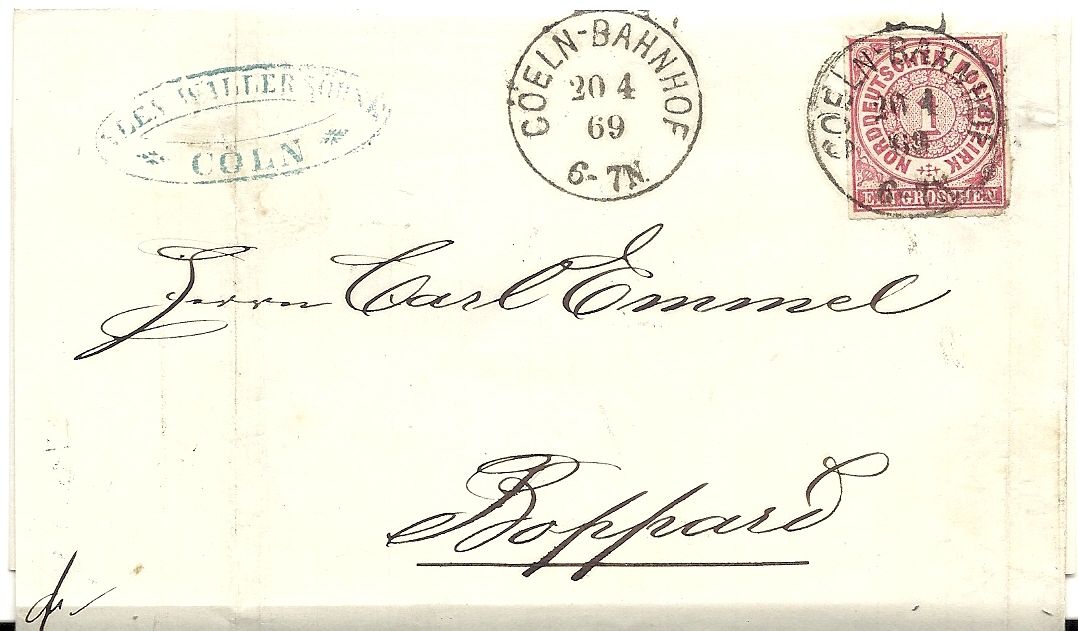 WALLER SÖHNE
* CÖLN *
CÖELN-BAHNHOF
20 4
69
6-7N.
CÖELN-BAHNHOF
20 4
69
6-7N
NORDDEUTSCHER POSTBEZIRK
1
EIN GROSCHEN
Herrn Carl Emmel
Boppard
fr.